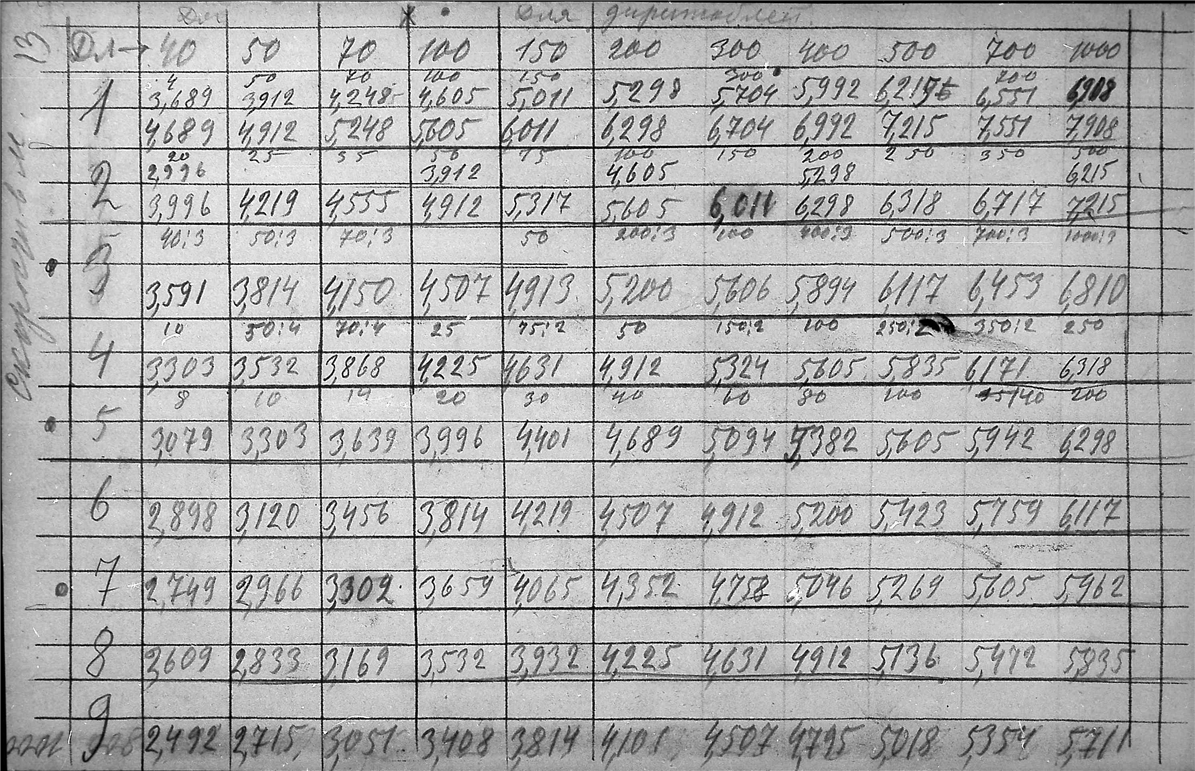 Для дирижаблей
13 Дл→ 40 50 70 100 150 200 300 400 500 700 1000
4 50 70 100 150 300 700
1 3,689 3,912 4,248 4,605 5,011 5,298 5,704 5,992 6,215 6,551 6,908
4,689 4,912 5,248 5,605 6,011 6,298 6,704 6,992 7,215 7,551 7,908
20 25 35 50 75 100 150 200 250 350 500
2,996 3,912 4,605 5,298 6,215
2 3,996 4,219 4,555 4,912 5,317 5,605 6,011 6,298 6,318 6,717 7,215
40:3 50:3 70:3 50 200:3 100 400:3 500:3 700:3 1000:3
3 3,591 3,814 4,150 4,507 4,913 5,200 5,606 5,894 6,117 6,453 6,810
10 50:4 70:4 25 75:2 50 150:2 100 250:2 350:2 250
4 3,303 3,532 3,868 4,225 4,631 4,912 5,324 5,605 5,835 6,171 6,318
8 10 14 20 30 40 60 80 100 140 200
5 3,079 3,303 3,639 3,996 4,401 4,689 5,094 5,382 5,605 5,942 6,298
6 2,898 3,120 3,456 3,814 4,219 4,507 4,912 5,200 5,423 5,759 6,117
7 2,749 2,966 3,302 3,659 4,065 4,352 4,758 5,046 5,269 5,605 5,962
8 2,609 2,833 3,169 3,532 3,932 4,225 4,631 4,912 5,136 5,472 5,835
9 2,492 2,715 3,051 3,408 3,814 4,101 4,507 4,795 5,018 5,354 5,711